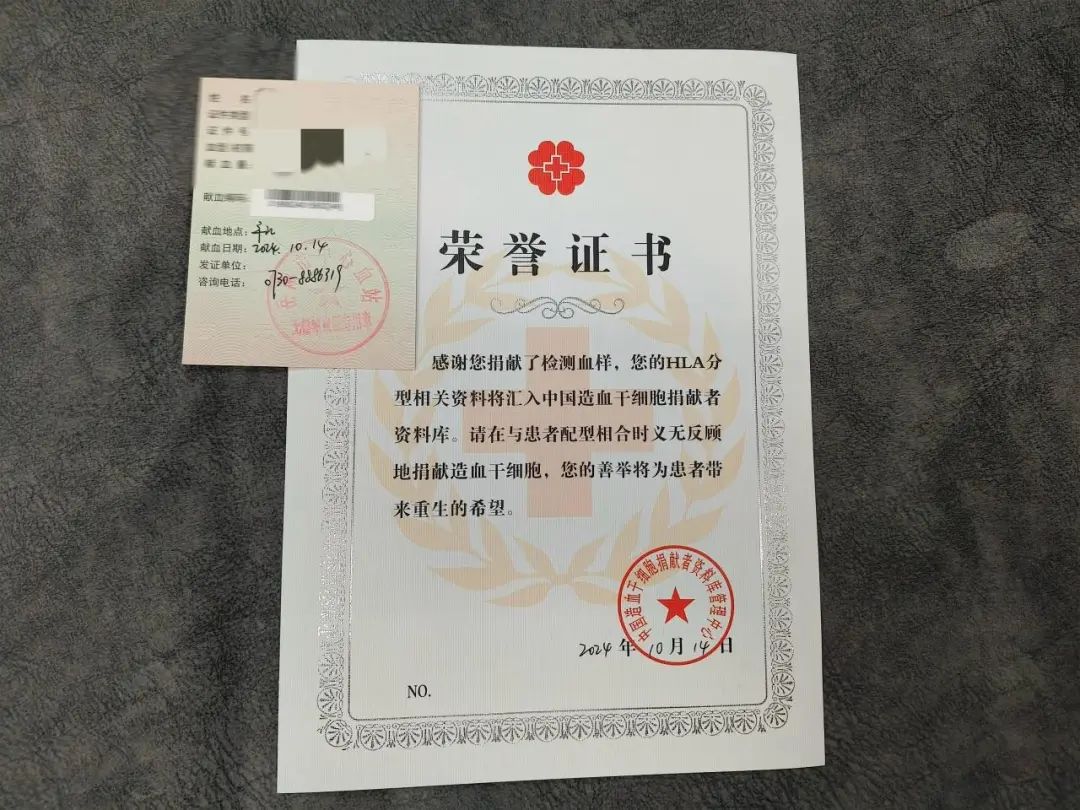 献血地点：平江
献血日期：2024. 10. 14
发证单位：
咨询电话：0730-8886319
荣誉证书
感谢您捐献了检测血样，您的HLA分
型相关资料将汇入中国造血干细胞捐献者
资料库。请在与患者配型相合时义无反顾
地捐献造血干细胞，您的善举将为患者带
来重生的希望。
中国造血干细胞捐献者资料库管理中心
2024 年 10 月 14 日
NO.